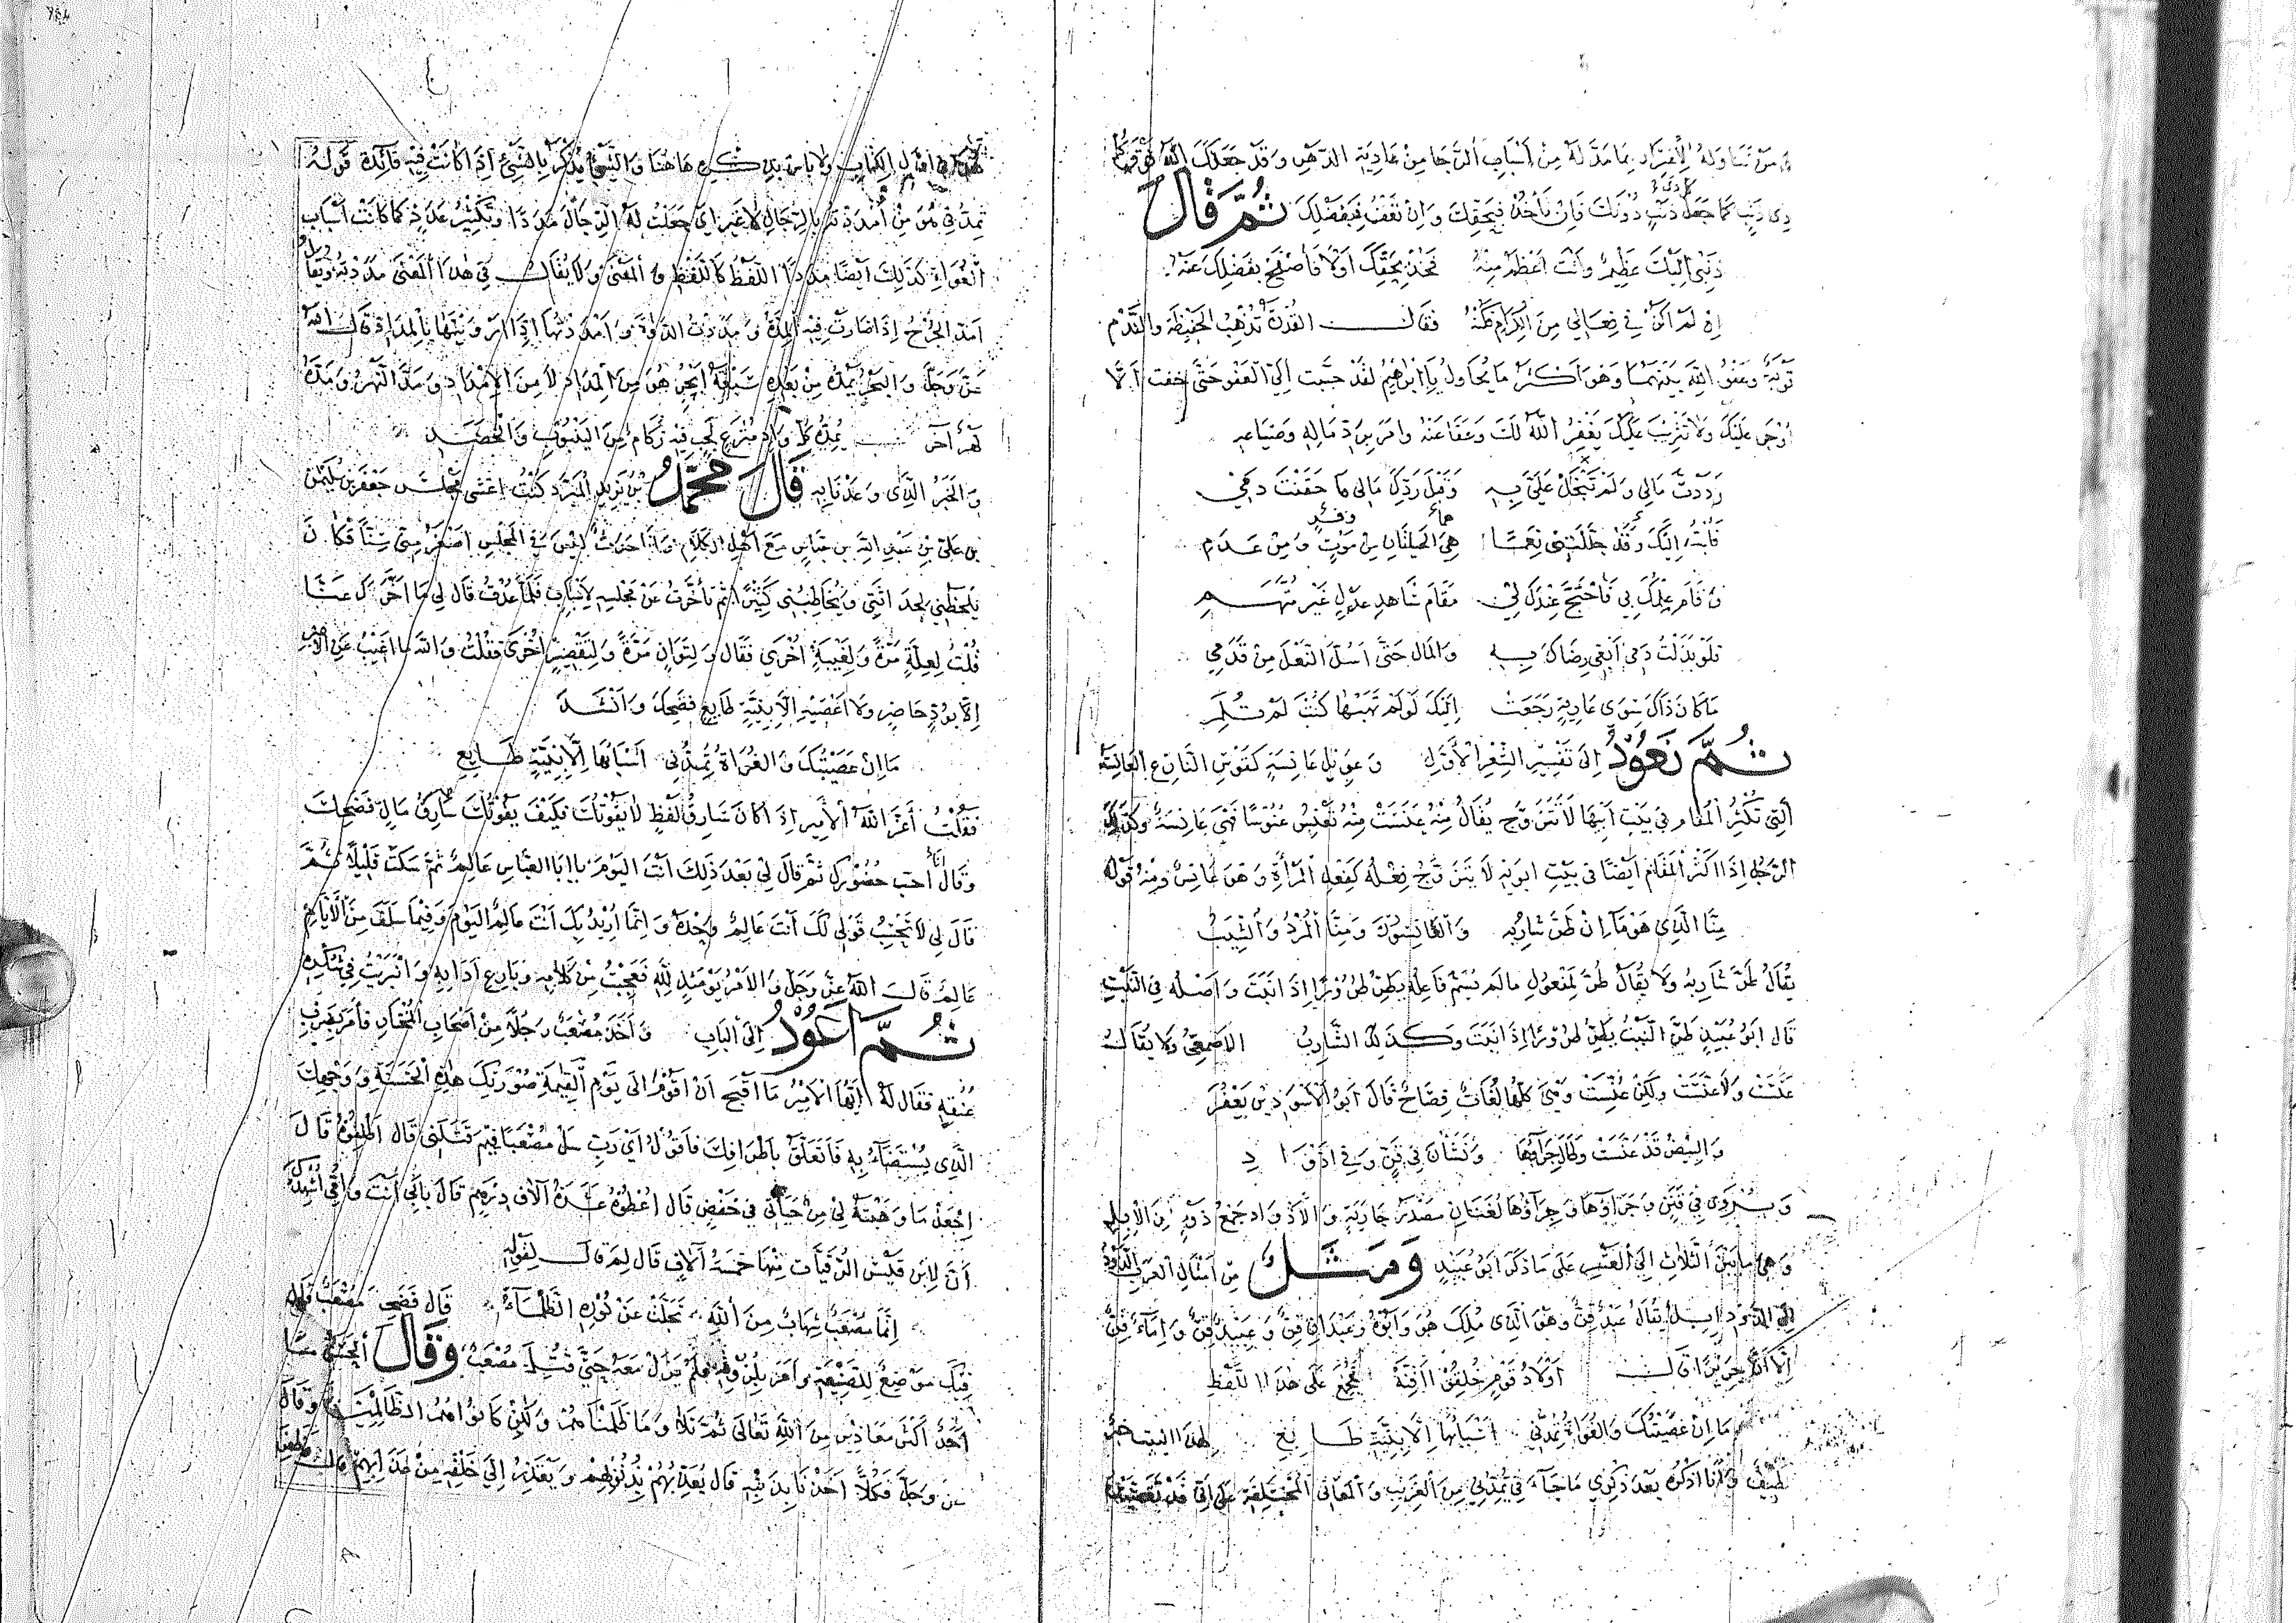 من تناوله الإقرار بما مد له من أسباب الرجا من عادية الدهر وقد جعلك الله فوق كل
ذي ذنب كما جعل كل ذي ذنب دونك فإن تأخذ فبحقك وإن تعف فبفضلك ثم قال
ذنبي إليك عظيم وأنت أعظم منه فخذ بحقك أولا فاصفح بفضلك عنه
إن لم أكن في فعالي من الكرام فكنه فقال القدرة تذهب الحفيظة والندم
توبة وعفو الله بينهما وهو أكثر ما يحاول يا إبراهيم لقد حببت إلي العفو حتى خفت ألا
أوجر عليك ولا تثريب عليك يغفر الله لك وعفا عنه وأمر برد ماله وضياعه
رددت مالي ولم تبخل علي به وقبل ردك مالي ما حقنت دمي
فأبت إليك وقد خللتني نعما هي الحياتان من موت ومن عدم
وقام علمك بي فاحتج عندك لي مقام شاهد عدل غير متهم
فلو بذلت دمي أبغي رضاك به والمال حتى أسل النعل من قدمي
ما كان ذاك سوى عارية رجعت إليك لو لم تهبها كنت لم تلم
ثم نعود إلى تفسير الشعر الأول وعويل عانسة كقوس النازع العانسة
التي تكثر المقام في بيت أبيها لا تتزوج يقال منه عنست منه تعنس عنوسا فهي عانسة وكذلك
الرجل إذا أكثر المقام أيضا في بيت أبويه لا يتزوج فعله كفعل المرأة وهو عانس ومنه قوله
منا الذي هو ما إن طر شاربه والعانسون ومنا المرد والشيب
يقال طر شاربه ولا يقال طر لمفعول ما لم يسم فاعله يطر طرورا إذا نبت وأصله في النبت
قال أبو عبيد طر النبت يطر طرورا إذا نبت وكذلك الشارب الأصمعي ولا يقال
عنست ولا عنست ولكن عنست وهي كلها لغات فصاح قال أبو الأسود بن يعفر
والبيض قد عنست وطال جراؤها ونشأن في قن وفي أذواد
ويروى في فنن وجراؤها وجراؤها لغتان مصدر جارية والأذواد جمع ذود من الإبل
وهي ما بين الثلاث إلى العشر على ما ذكر أبو عبيد ومثل من أمثال العرب الذود
إلى الذود إبل يقال عبد قن وهو الذي ملك هو وأبوه وعبدان قن وعبيد قن وإماء قن
إلا أن جريرا قال أولاد قوم خلقوا أقنة فجمع على هذا اللفظ
ما إن عصيتك والغواة تمدني أسبابها إلا بنية طايع لهذا البيت خبر
لطيف وأنا أذكره بعد ذكري ما جاء في تمدني من الغريب والمعاني المختلفة على أني قد
أول الكتاب ولا بأس بذكره هاهنا والشيء يذكر بالشيء إذا كانت فيه فائدة قوله
تمدني هو من أمددته بالرجال لا غير أي جعلت له الرجال مددا وتكثير عدد كما كانت أسباب
الغواة كذلك أيضا مددا اللفظ كاللفظ والمعنى ولا يقال في هذا المعنى مددته ويقال
أمد الجرح إذا صارت فيه المدة ومددت الدواة وأمددتها إذا رويتها بالمداد قال الله
عز وجل والبحر يمده من بعده سبعة أبحر هو من المداد لا من الإمداد ومد النهر ومده
نهر آخر يمده كل واد مترع لجب فيه ركام من الينبوت والخضد
والخبر الذي وعدنا به قال محمد بن يزيد المبرد كنت أغشى مجلس جعفر بن سليمن
بن علي بن عبد الله بن عباس مع أهل الكلام وأنا حدث ليس في المجلس أصغر مني سنا فكان
يلحظني لحداثتي ويخاطبني كثيرا ثم تأخرت عن مجلسه لأسباب فلما عدت قال لي ما أخرك عنا
قلت لعلة مرة ولغيبة أخرى فقال ولتوان مرة ولتقصير أخرى فقلت والله ما أغيب عن الأمير
إلا بود حاضر ولا أعصيه إلا بنية طايع فضحك وأنشد
ما إن عصيتك والغواة تمدني أسبابها إلا بنية طايع
فقلت أعز الله الأمير إذا كان سارق لفظ لا يفوتك فكيف يفوتك سارق مال فضحك
وقال أنا أحب حضورك ثم قال لي بعد ذلك أنت اليوم يا أبا العباس عالم ثم سكت قليلا ثم
قال لي لا تحسب قولي لك أنت عالم وحده وإنما أريد بك أنت عالم اليوم وفيما سلف من الأيام
عالم قال الله عز وجل والأمر يومئذ لله فعجبت من كلامه وبارع آدابه وانبريت في شكره
ثم أعود إلى الباب وأخذ مصعب رجلا من أصحاب المختار فأمر بضرب
عنقه فقال له أيها الأمير ما أقبح أن أقوم إلى يوم القيمة صورتك هذه الحسنة ووجهك
الذي يستضاء به فأتعلق بأطرافك فأقول أي رب سل مصعبا فيم قتلني قال أطلقوه قال
اجعل ما وهبته لي من حياتي في خفض قال أعطوه عشرة آلاف درهم قال بأبي أنت وأمي أشهدك
أن لابن قيس الرقيات منها خمسة آلاف قال لم قال لقوله
إنما مصعب شهاب من الله تجلت عن نوره الظلماء قال فضحك مصعب وقال
فيك موضع للصنيعة وأمر بلزومه فلم يزل معه حتى قتل مصعب وقال الحسن ما
أحد أكثر معاذير من الله تعالى ثم تلا وما ظلمناهم ولكن كانوا هم الظالمين وقال
عز وجل فكلا أخذنا بذنبه قال يعذبهم بذنوبهم ويعتذر إلى خلقه من عذابهم